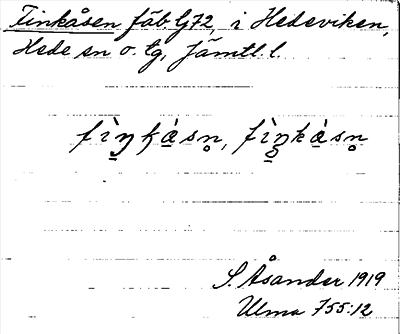 Finkåsen fäb. lg 72, i Hedeviken,
Hede sn o. tg, Jämtl. l.
fìŋkà̱sn̥, fìŋkà̱sn̥
S. Åsander 1919
Ulma 755:12